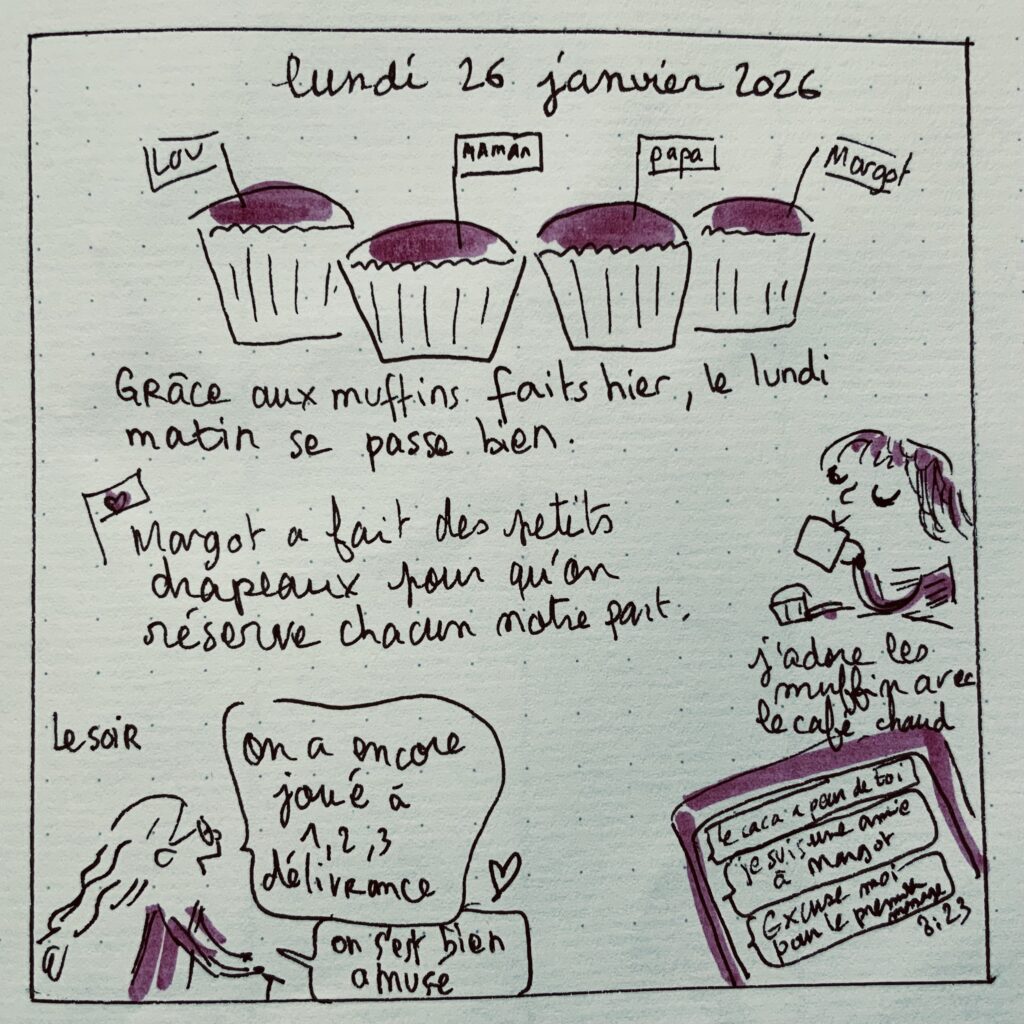 lundi 26 janvier 2026
LOU
MAMAN
papa
Margot
GRâCE aux muffins faits hier, le lundi
matin se passe bien.
Margot a fait des petits
drapeaux pour qu'on
réserve chacun notre part.
j'adore les
muffin avec
le café chaud
Le soir
on a encore
joué à
1, 2, 3
délivrance
on s'est bien
amusé
le caca a peur de toi
je suis une amie
à margot
Excuse moi
pour le premier
message
8:23